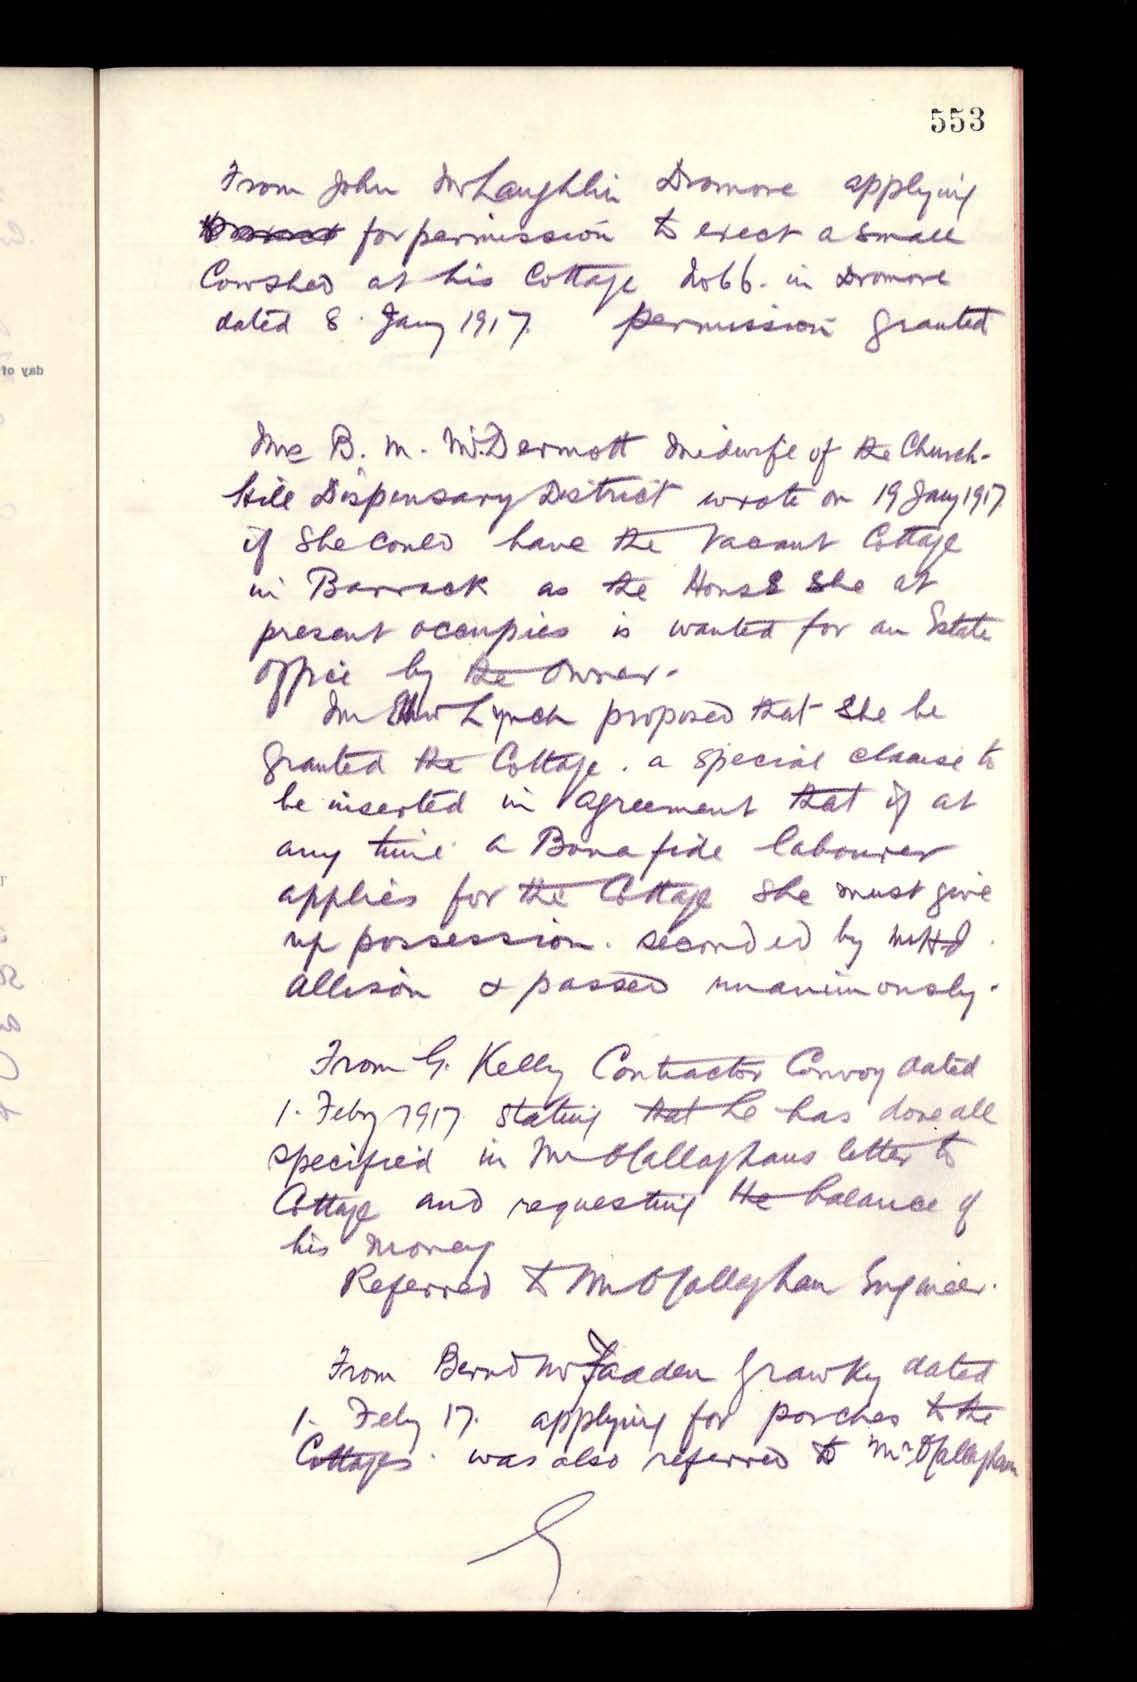 553
From John McLaughlin Dromore applying
for permission to erect a small
Cowshed at his Cottage No 66. in Dromore
dated 8. Jany 1917. permission granted
day of
Mrs B. M. McDermott Midwife of the Church-
hill Dispensary District wrote on 19 Jany 1917
if she could have the Vacant Cottage
in Barrack as the House She at
present occupies is wanted for an Estate
Office by the Owner.
Mr Lynch proposed that She be
granted the Cottage. a special clause to
be inserted in agreement that if at
any time a Bona fide labourer
applies for the Cottage She must give
up possession. seconded by Mr
Allison & passed unanimously.
From G. Kelly Contractor Convoy dated
1. Feby 1917 stating that he has done all
specified in Mr O'Callaghans letter to
Cottage and requesting the balance of
his Money
Referred to Mr O'Callaghan Engineer.
From Bernd McFadden Grawky dated
1. Feby 17. applying for porches to the
Cottages. was also referred to Mr O'Callaghan